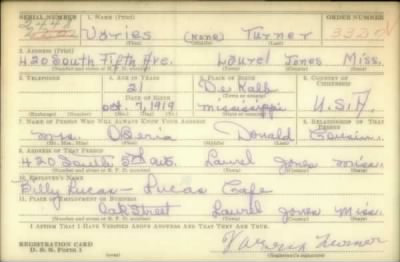 SERIAL NUMBER 1. NAME (Print) ORDER NUMBER
(None) Turner
(First) (Middle) (Last)
2. ADDRESS (Print)
420 South Fifth Ave. Laurel Jones Miss.
(Number and street or R. F. D. number) (Town) (County) (State)
3. TELEPHONE 4. AGE IN YEARS 5. PLACE OF BIRTH 6. COUNTRY OF CITIZENSHIP
21 De Kalb
DATE OF BIRTH (Town or county)
Oct. 7, 1919 Mississippi U.S.A.
(Exchange) (Number) (Mo.) (Day) (Yr.) (State or country)
7. NAME OF PERSON WHO WILL ALWAYS KNOW YOUR ADDRESS 8. RELATIONSHIP OF THAT PERSON
Mrs. Donald Cousin
(Mr., Mrs., Miss) (First) (Middle) (Last)
9. ADDRESS OF THAT PERSON
420 South Ave. Laurel Jones Miss.
(Number and street or R. F. D. number) (Town) (County) (State)
10. EMPLOYER'S NAME
Billy Lucas - Lucas Cafe
11. PLACE OF EMPLOYMENT OR BUSINESS
Oak Street Laurel Jones Miss.
(Number and street or R. F. D. number) (Town) (County) (State)
I AFFIRM THAT I HAVE VERIFIED ABOVE ANSWERS AND THAT THEY ARE TRUE.
REGISTRATION CARD
D. S. S. Form 1 Turner
(Registrant's signature)